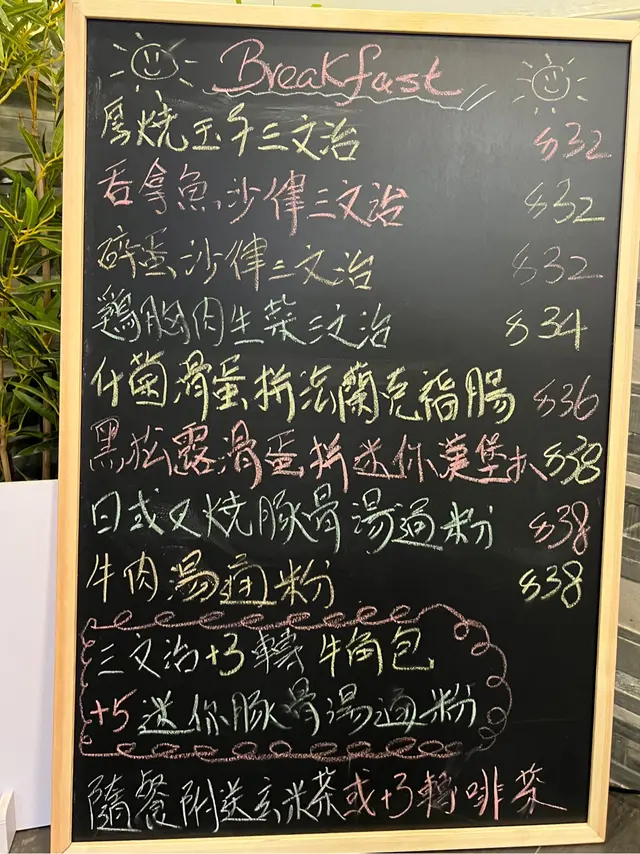 Breakfast
厚燒玉子三文治 $32
吞拿魚沙律三文治 $32
碎蛋沙律三文治 $32
鷄胸肉生菜三文治 $34
什菌滑蛋拼法蘭克福腸 $36
黑松露滑蛋拼迷你漢堡扒 $38
日式叉燒豚骨湯通粉 $38
牛肉湯通粉 $38
三文治+3轉牛角包
+5迷你豚骨湯通粉
隨餐附送玄米茶或+3轉啡菜